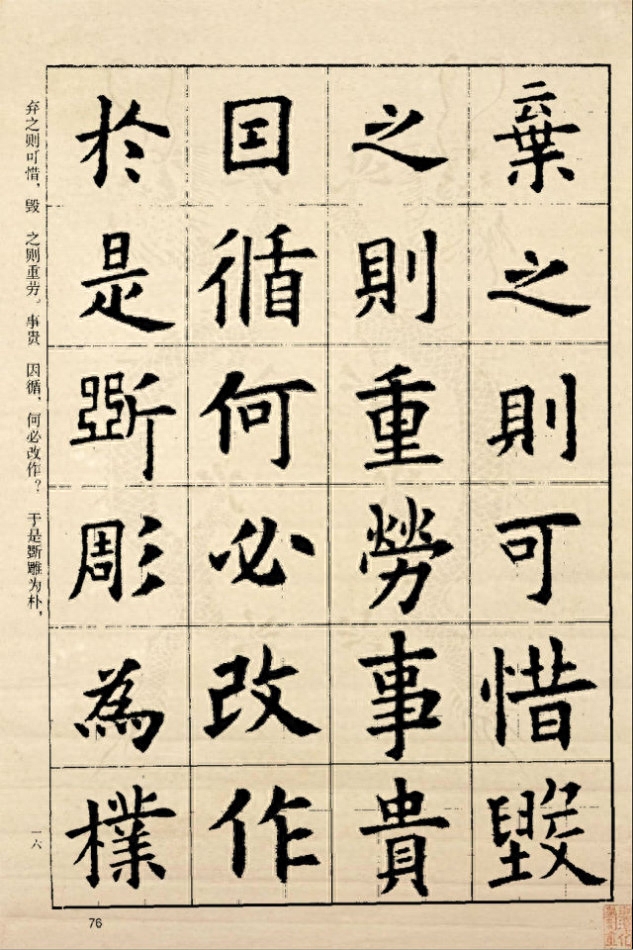 棄之則可惜毀
之則重勞事貴
囙循何必改作
於是斲彫為樸
弃之则可惜，毁 之则重劳。事贵 因循，何必改作？ 于是斲雕为朴，
一六
76